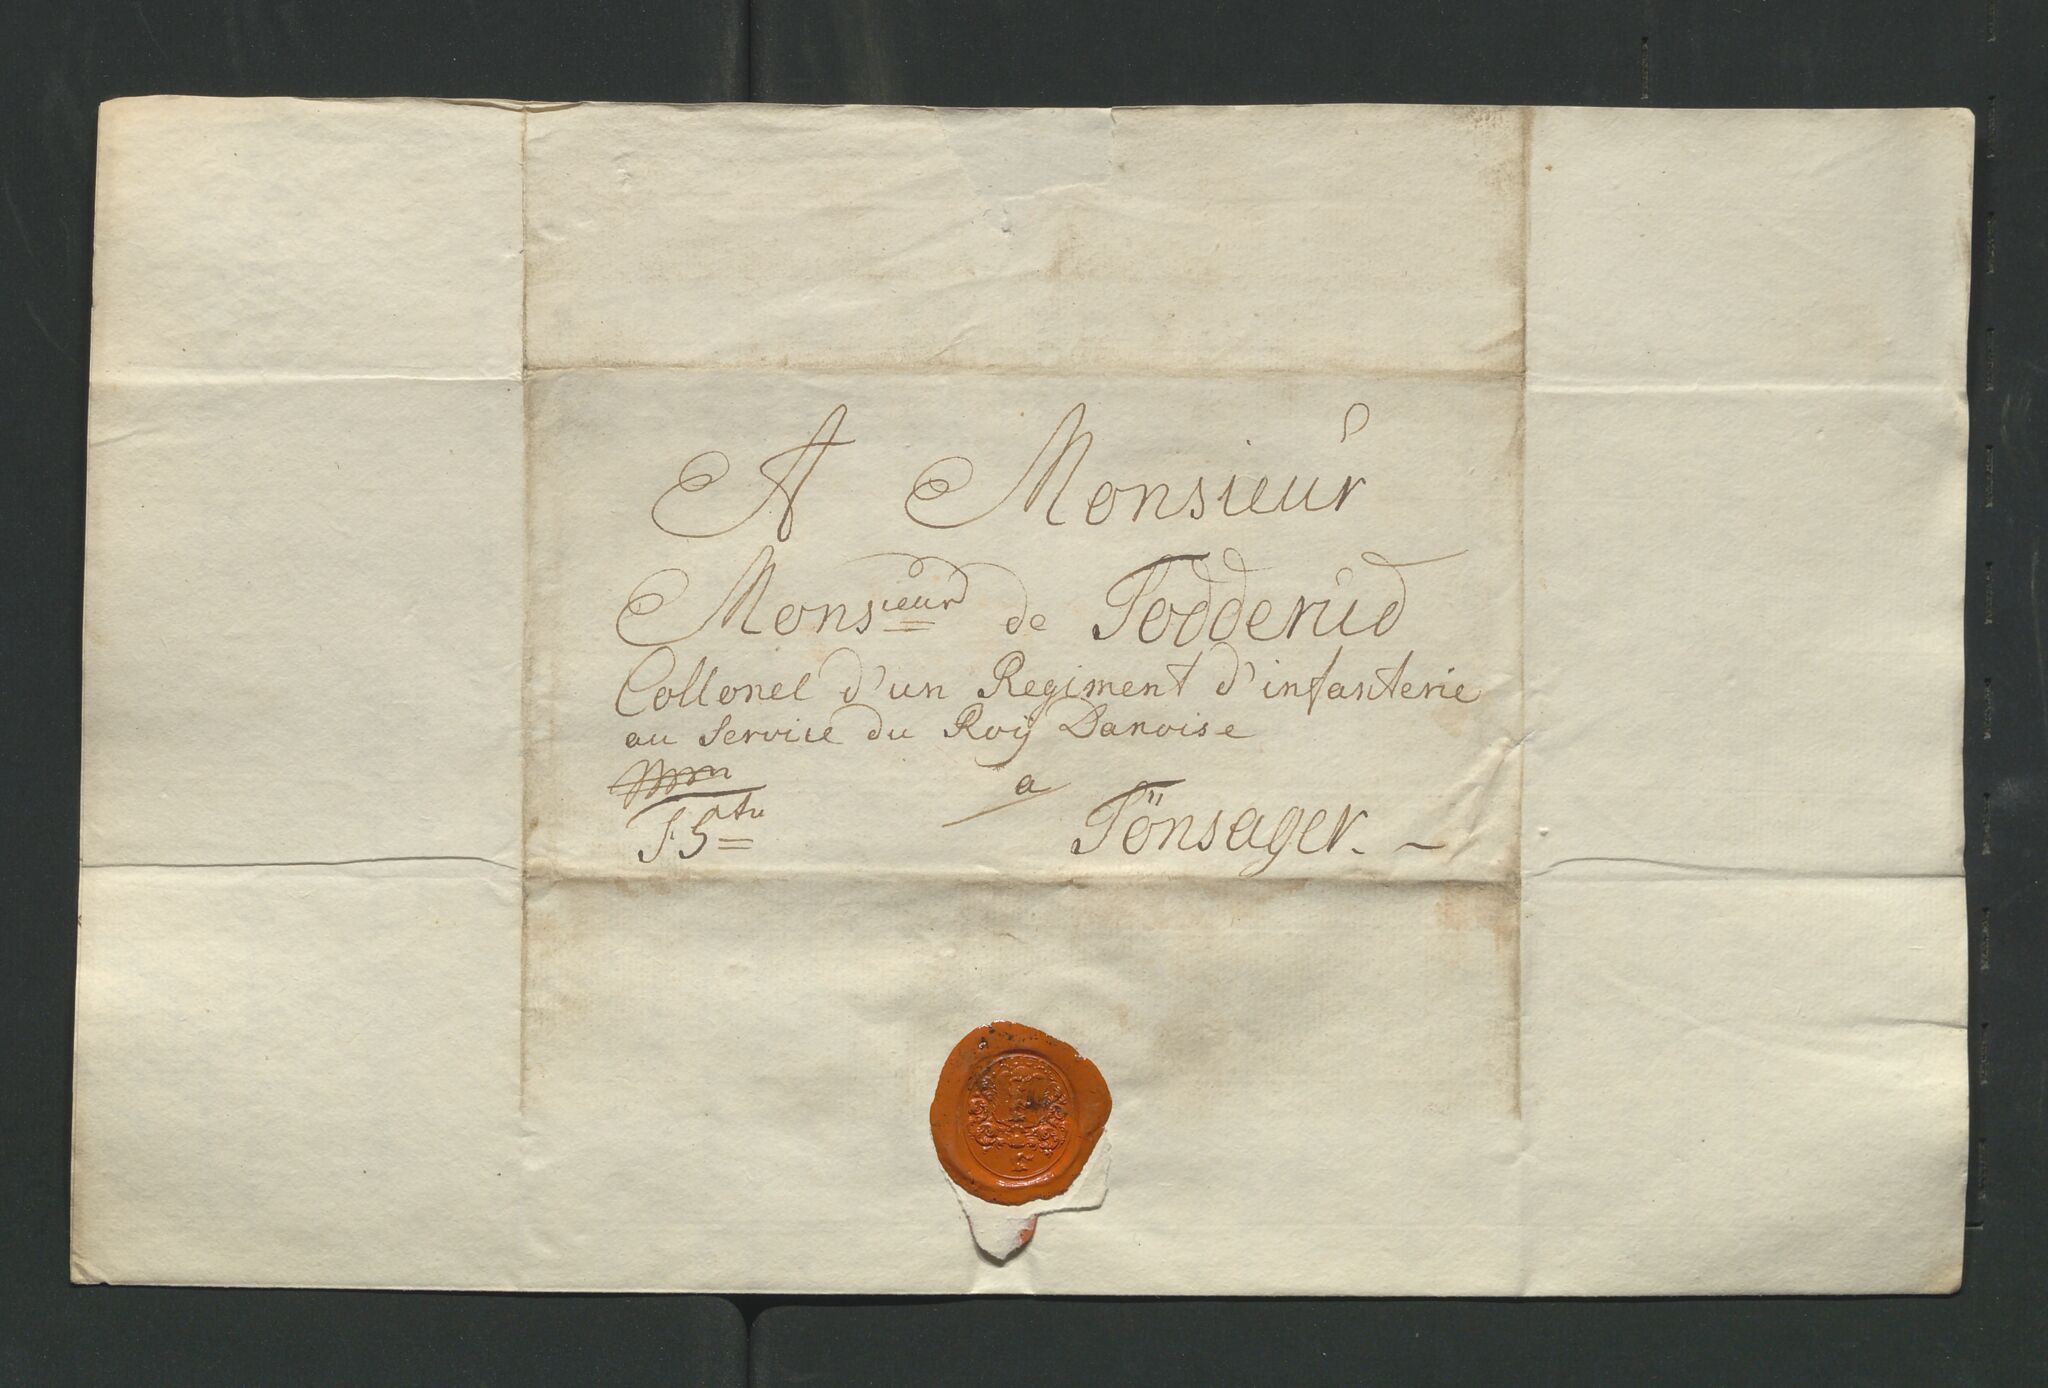 A Monsieur
Monsieur de Todderud
Collonel d'un Regiment d'infanterie
au Service du Roÿ Danoise
a
Tönsager.